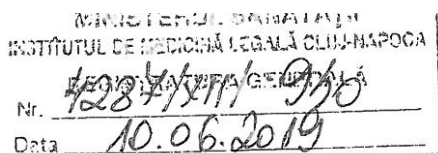 MINISTERUL SĂNĂTĂŢII
INSTITUTUL DE MEDICINĂ LEGALĂ CLUJ-NAPOCA
REGISTRATURA GENERALĂ
Nr. 4287/XII/ 940
Data 10.06.2019